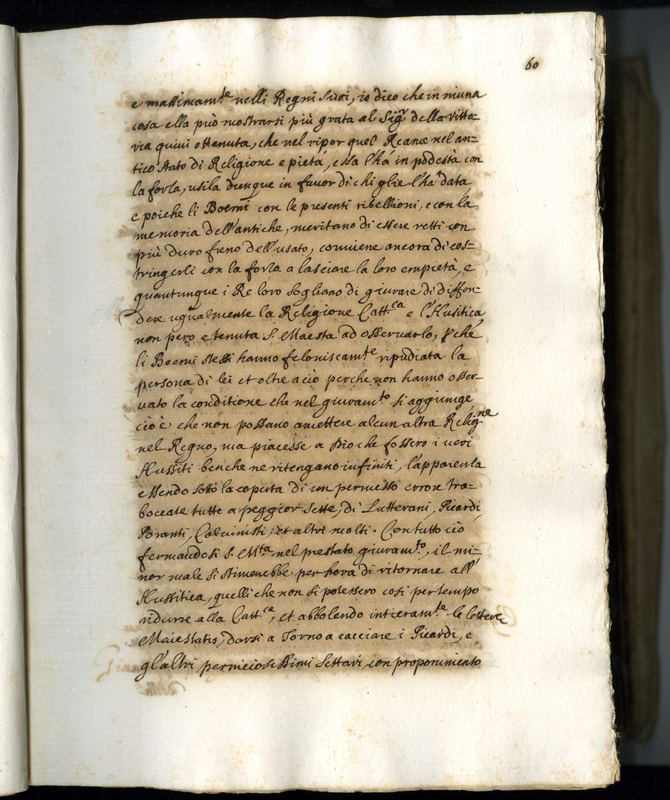 60
e massimam.te nelli Regni suoi, io dico che in niuna
cosa ella può mostrarsi più grata al Sig.r della vitto-
ria quivi ottenuta, che nel ripor quel Reame nel an-
tico stato di Religione e pietà, essa l'ha in podestà con
la forza, usila dunque in favor di chi glie l'ha data
e poiche li Boemi con le presenti ribellioni, e con la
memoria dell'antiche, meritano di essere retti con
più duro freno dell'usato, conviene ancora di cos-
tringerli con la forza a lasciare la loro empietà, e
quantunque i Re loro sogliano di giurare di diffon-
dere ugualmente la Religione Catt.ca e l'Hussitica
non pero e tenuta S. Maesta ad osservarlo, p che
li Boemi stessi hanno feloniscam.te ripudiata la
persona di lei et oltre a ciò perche non hanno osser-
vato la conditione che nel giuram.to si aggiunge
cioè che non possano amettere alcun altra Relig.ne
nel Regno, ma piacesse a Dio che fossero i veri
Hussiti benche ne ritengano infiniti, l'apparenza
essendo sotto la coperta di un permesso errore tra-
boccate tutte a peggior sette, di Lutterani, Picardi
Calvinisti, et altri molti. Con tutto ciò
fermandosi S. M.ta nel prestato giuram.to, il mi-
nor male si stimerebbe per hora di ritornare all'
Hussitica, quelli che non si potessero così per tempo
ridurre alla Catt.ca, et abbolendo intieram.te le lettere
Maiestatis, darsi a torno a cacciare i Picardi, e
gl'altri perniciosissimi settari, con proponimento